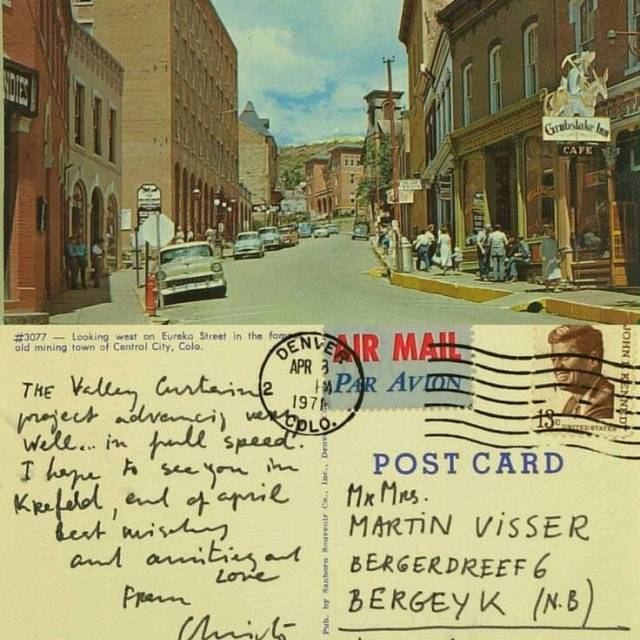 Grubstake Inn
CAFE
#3077 — Looking west on Eureka Street in the
old mining town of Central City, Colo.
DENVER
APR 3
PM
1971
COLO.
AIR MAIL
PAR AVION
JOHN F. KENNEDY
13c UNITED STATES
THE Valley Curtain
project advancing very
well... in full speed.
I hope to see you in
Krefeld, end of april
best wishes
and
Love
From
Christo
Pub. by Sanborn Souvenir Co., Inc., Denver
POST CARD
Mr Mrs.
MARTIN VISSER
BERGERDREEF 6
BERGEYK (N.B)